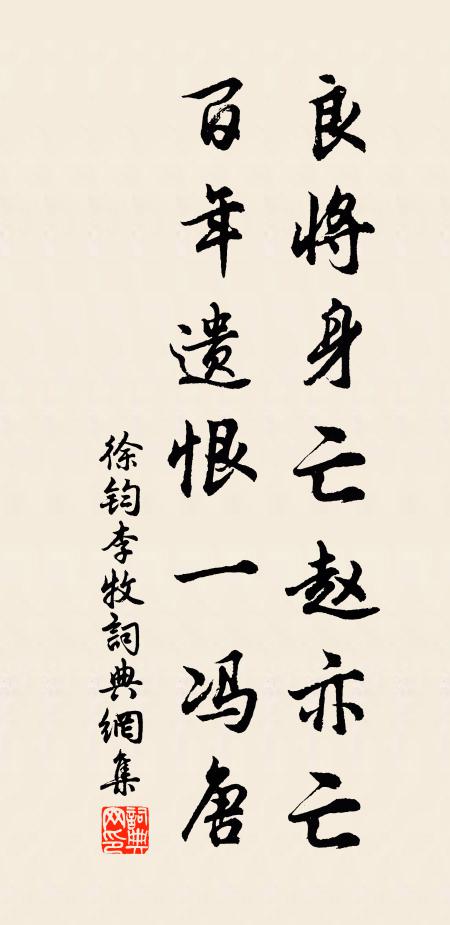 良将身亡赵亦亡
百年遗恨一冯唐
徐钧李牧詞典網集
詞典网印